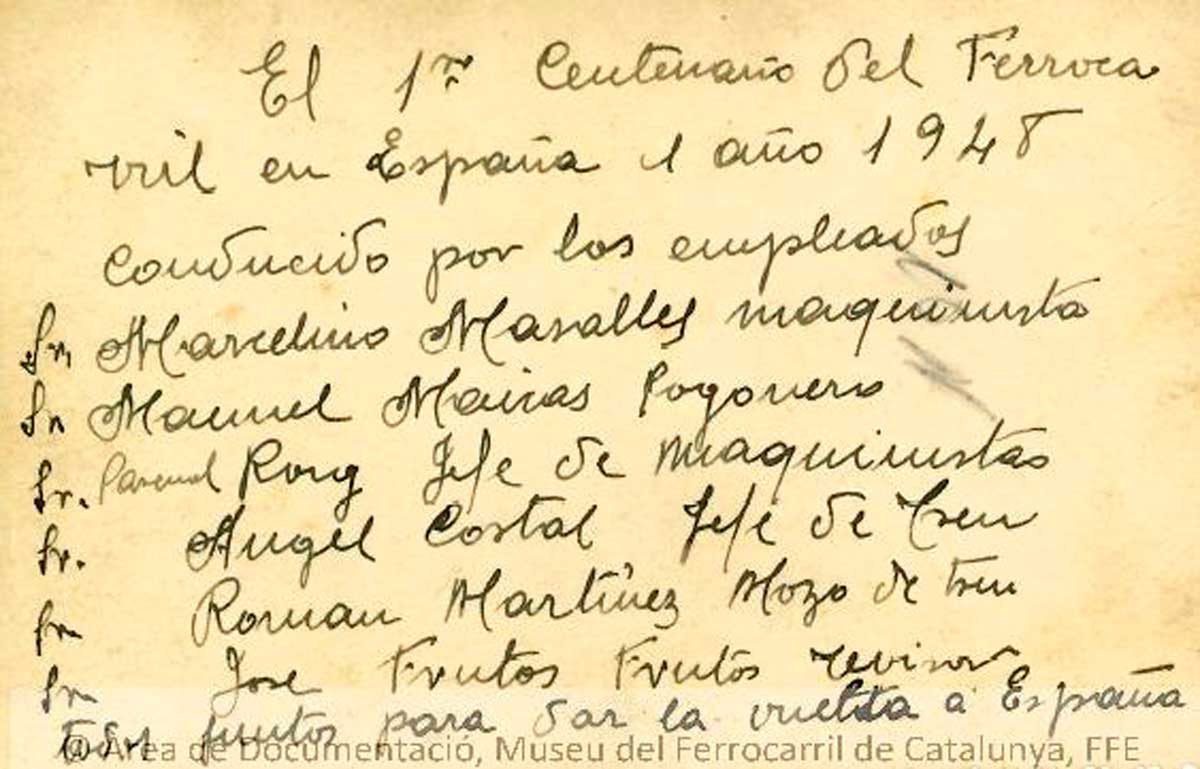 El 1r Centenario del Ferroca
rril en España el año 1948
Conducido por los empleados
Sr. Marcelino Masalles maquinista
Sr Manuel Mairas Fogonero
Sr. Pascual Roig Jefe de maquinistas
Sr. Angel Costal Jefe de Tren
Sr Roman Martínez Mozo de tren
Sr Jose Frutos Frutos revisor
todos juntos para dar la vuelta a España
© Àrea de Documentació, Museu del Ferrocarril de Catalunya, FFE